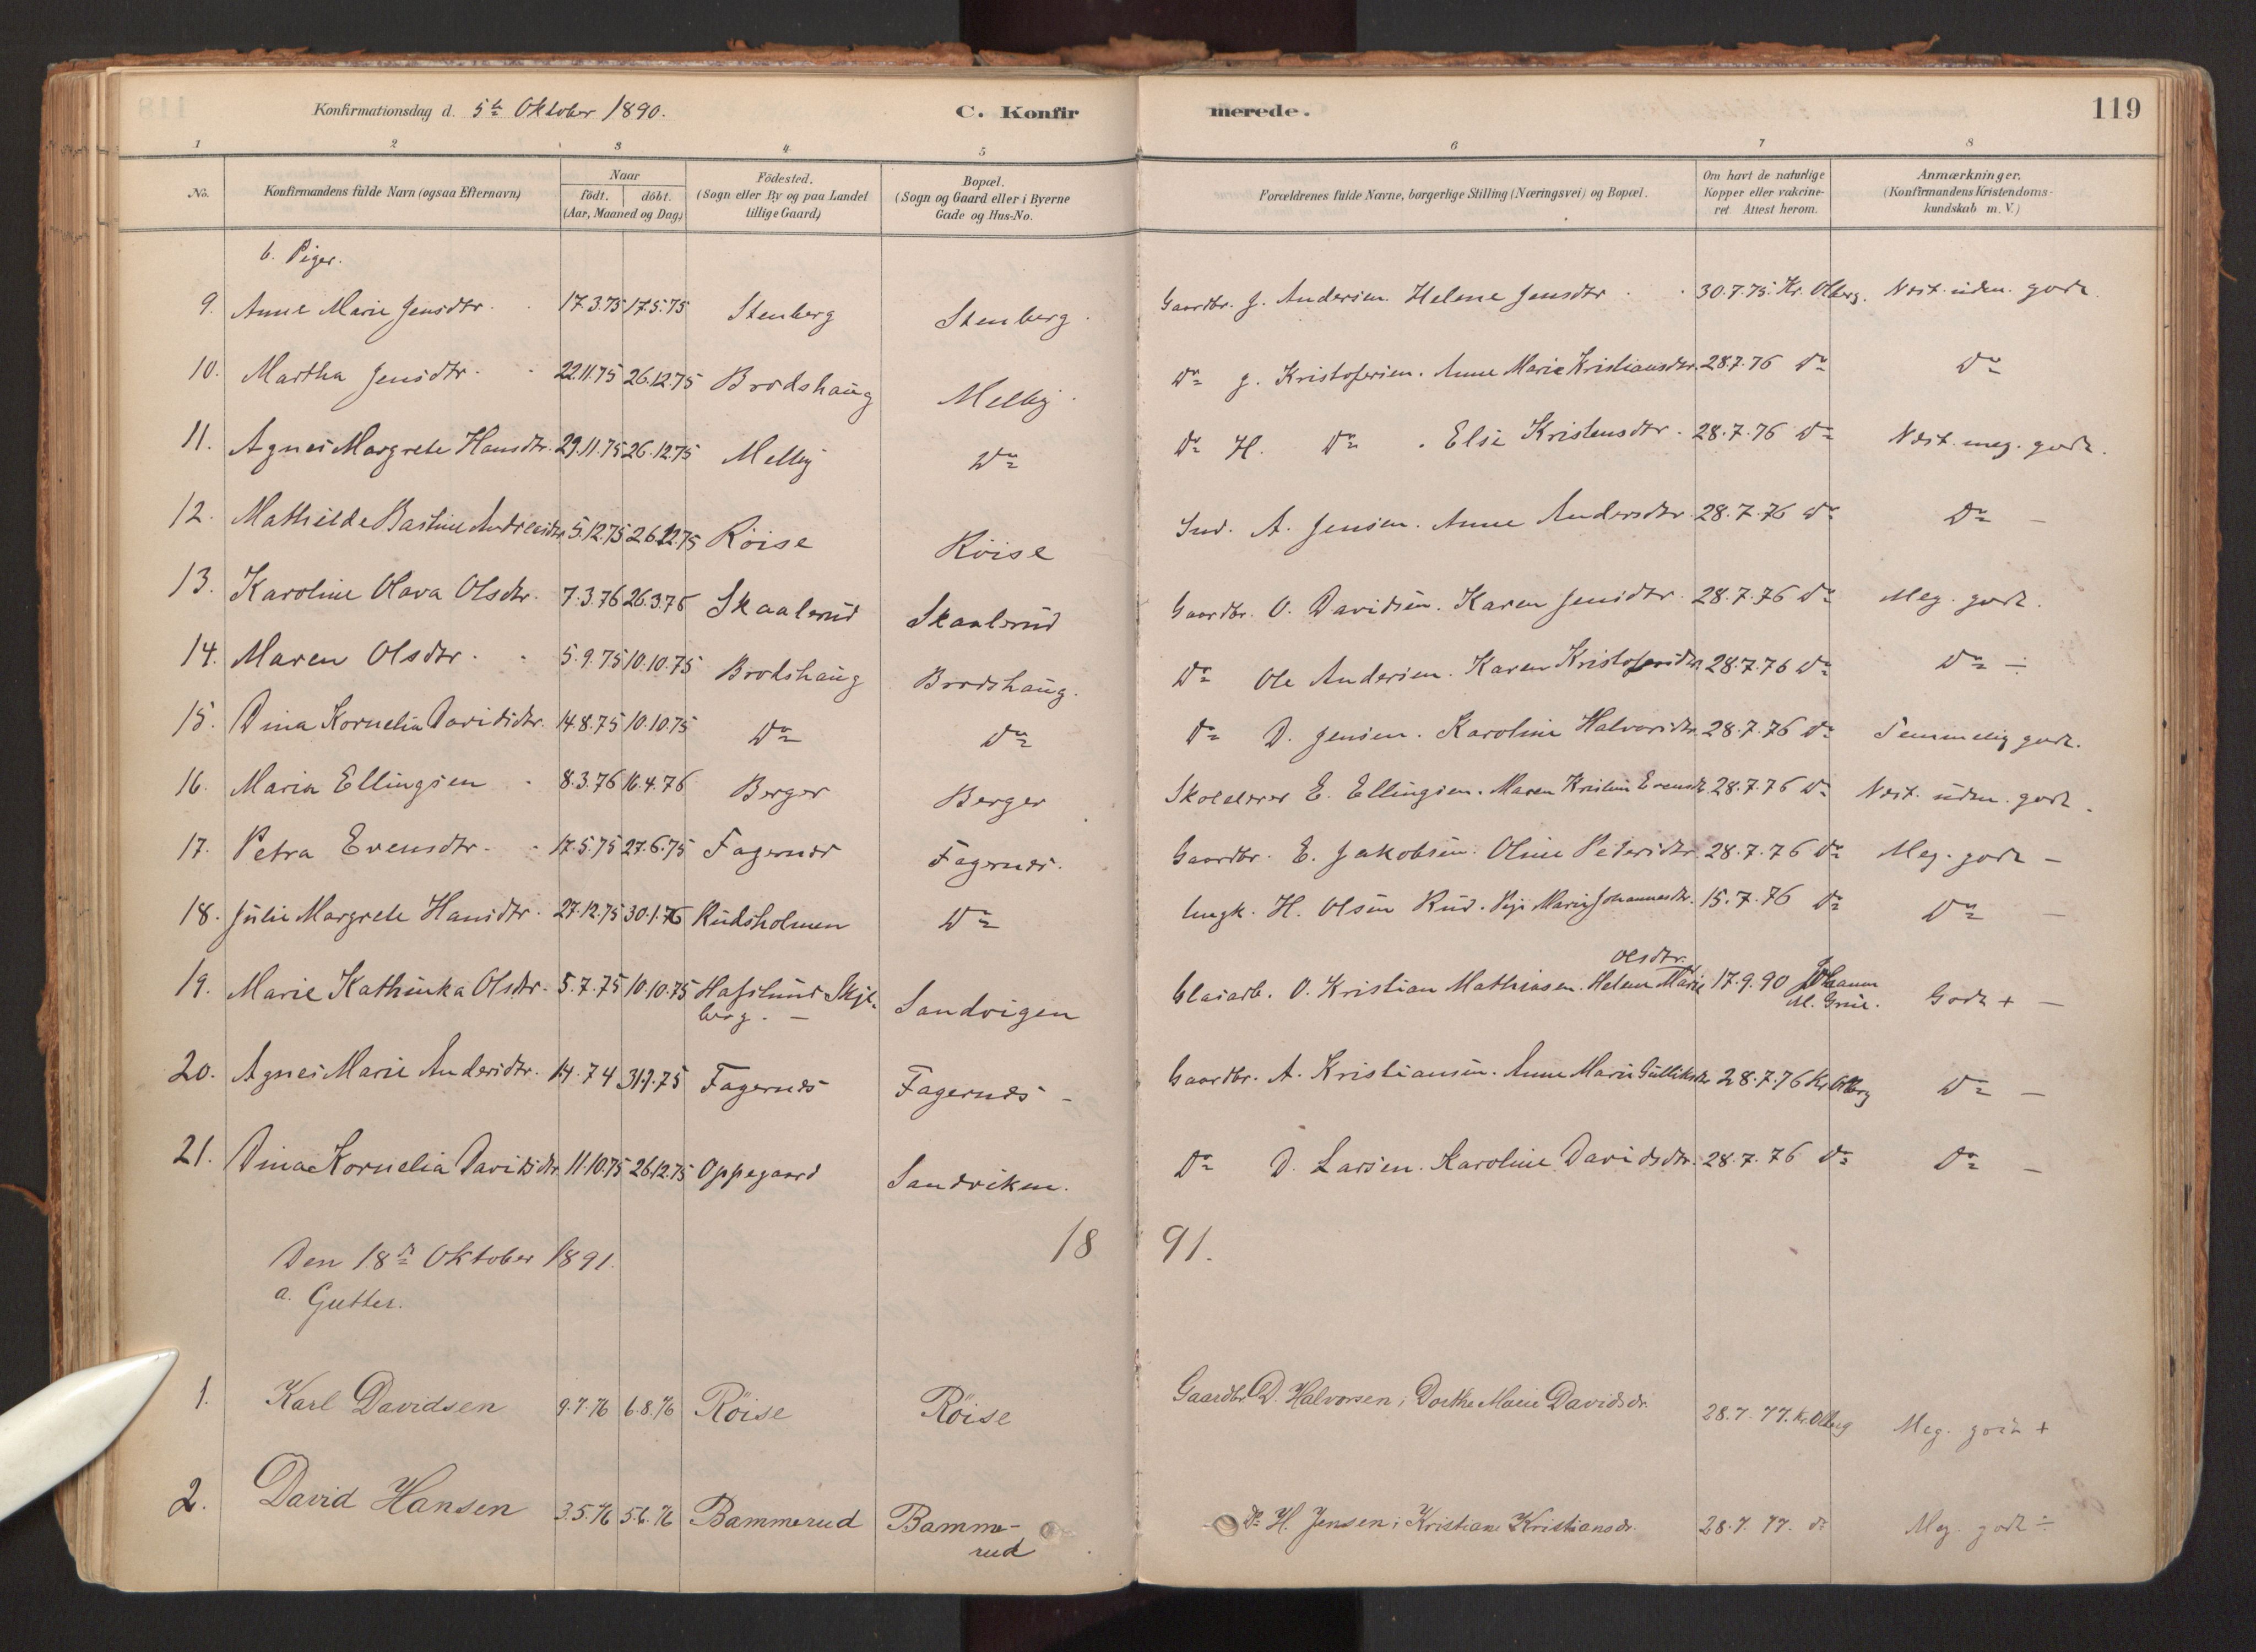 Konfirmationsdag d. 5te Oktober 1890. C. Konfirmerede. 119
1 2 3 4 5 6 7 8
No. Konfirmandens fulde Navn (ogsaa Efternavn) Naar födt. döbt. (Aar, Maaned og Dag) Födested. (Sogn eller By og paa Landet tillige Gaard) Bopæl. (Sogn og Gaard eller i Byerne Gade og Hus-No. Forældrenes fulde Navne, borgerlige Stilling (Næringsvei) og Bopæl. Om havt de naturlige Kopper eller vakcineret Attest herom. Anmærkninger. (Konfirmandens Kristendomskundskab m. V.)
b. Piger.
9. Anne Marie Jensdtr. 17.3.75 17.5.75 Stenberg Stenberg. Gaardbr. J. Andersen. Helene Jensdtr. 30.7.75. Kr. Olberg. Næst. uden. godt.
10. Martha Jensdtr. 22.11.75 26.12.75 Brodshaug Melby. Do J. Kristofersen. Anne Marie Kristiansdtr. 28.7.76 Do Do
11. Agnes Margrete Hansdtr. 29.11.75 26.12.75 Melby Do Do H. Do. Else Kristensdtr. 28.7.76 Do Næst. meg. godt.
12. Mathilde Bastine Andreasdtr. 5.12.75 26.12.75 Röise Röise Ind. A. Jensen. Anne Andersdtr. 28.7.76 Do Do –
13. Karoline Olava Olsdtr. 7.3.76 26.3.76 Skaalerud Skaalerud Gaardbr. O. Davidsen. Karen Jensdtr. 28.7.76 Do Meg. godt.
14. Maren Olsdtr. 5.9.75 10.10.75 Brodshaug Brodshaug. Do Ole Andersen. Karen Kristofersdtr. 28.7.76 Do Do ÷
15. Dina Kornelia Davidsdtr. 14.8.75 10.10.75 Do Do Do D. Jensen. Karoline Halvorsdtr. 28.7.76 Do Temmelig godt.
16. Maria Ellingsen 8.3.76 16.4.76 Berger Berger Skolelærer E. Ellingsen. Maren Kristine Evensdtr. 28.7.76 Do Næst. uden. godt.
17. Petra Evensdtr. 17.5.75 27.6.75 Fagernæs Fagernæs. Gaardbr. E. Jakobsen. Oline Petersdtr. 28.7.76 Do Meg. godt –
18. Julie Margrete Hansdtr. 27.12.75 30.1.76 Rudsholmen Do H. Olsen Rud. Marie Johannesdtr. 15.7.76 Do Do –
Olsdtr.
19. Marie Kathinka Olsdtr. 5.7.75 10.10.75 Hafslund Skjeberg. – Sandvigen Glasarb. O. Kristian Mathiasen. Helene Marie 17.9.90 Godt + –
20. Agnes Marie Andersdtr. Fagernæs Fagernæs – Gaardbr. A. Kristiansen. Anne Marie Gulliksdtr. 28.7.76 Kr. Olberg Do –
21. Dina Kornelia Davidsdtr. 11.10.75 26.12.75 Oppegaard Sandviken. Do D. Larsen. Karoline Davidsdtr. 28.7.76 Do Do –
1891.
Den 18de Oktober 1891.
a. Gutter.
1. Karl Davidsen 9.7.76 6.8.76 Röise Röise Gaardbr. D. Halvorsen; Dorthe Marie Davidsdr. 28.7.77. Kr. Olberg Meg. godt +
2. David Hansen 3.5.76 5.6.76 Bammerud Bammerud Do H. Jensen; Kristiane Kristiansdr. 28.7.77. do Meg. godt ÷